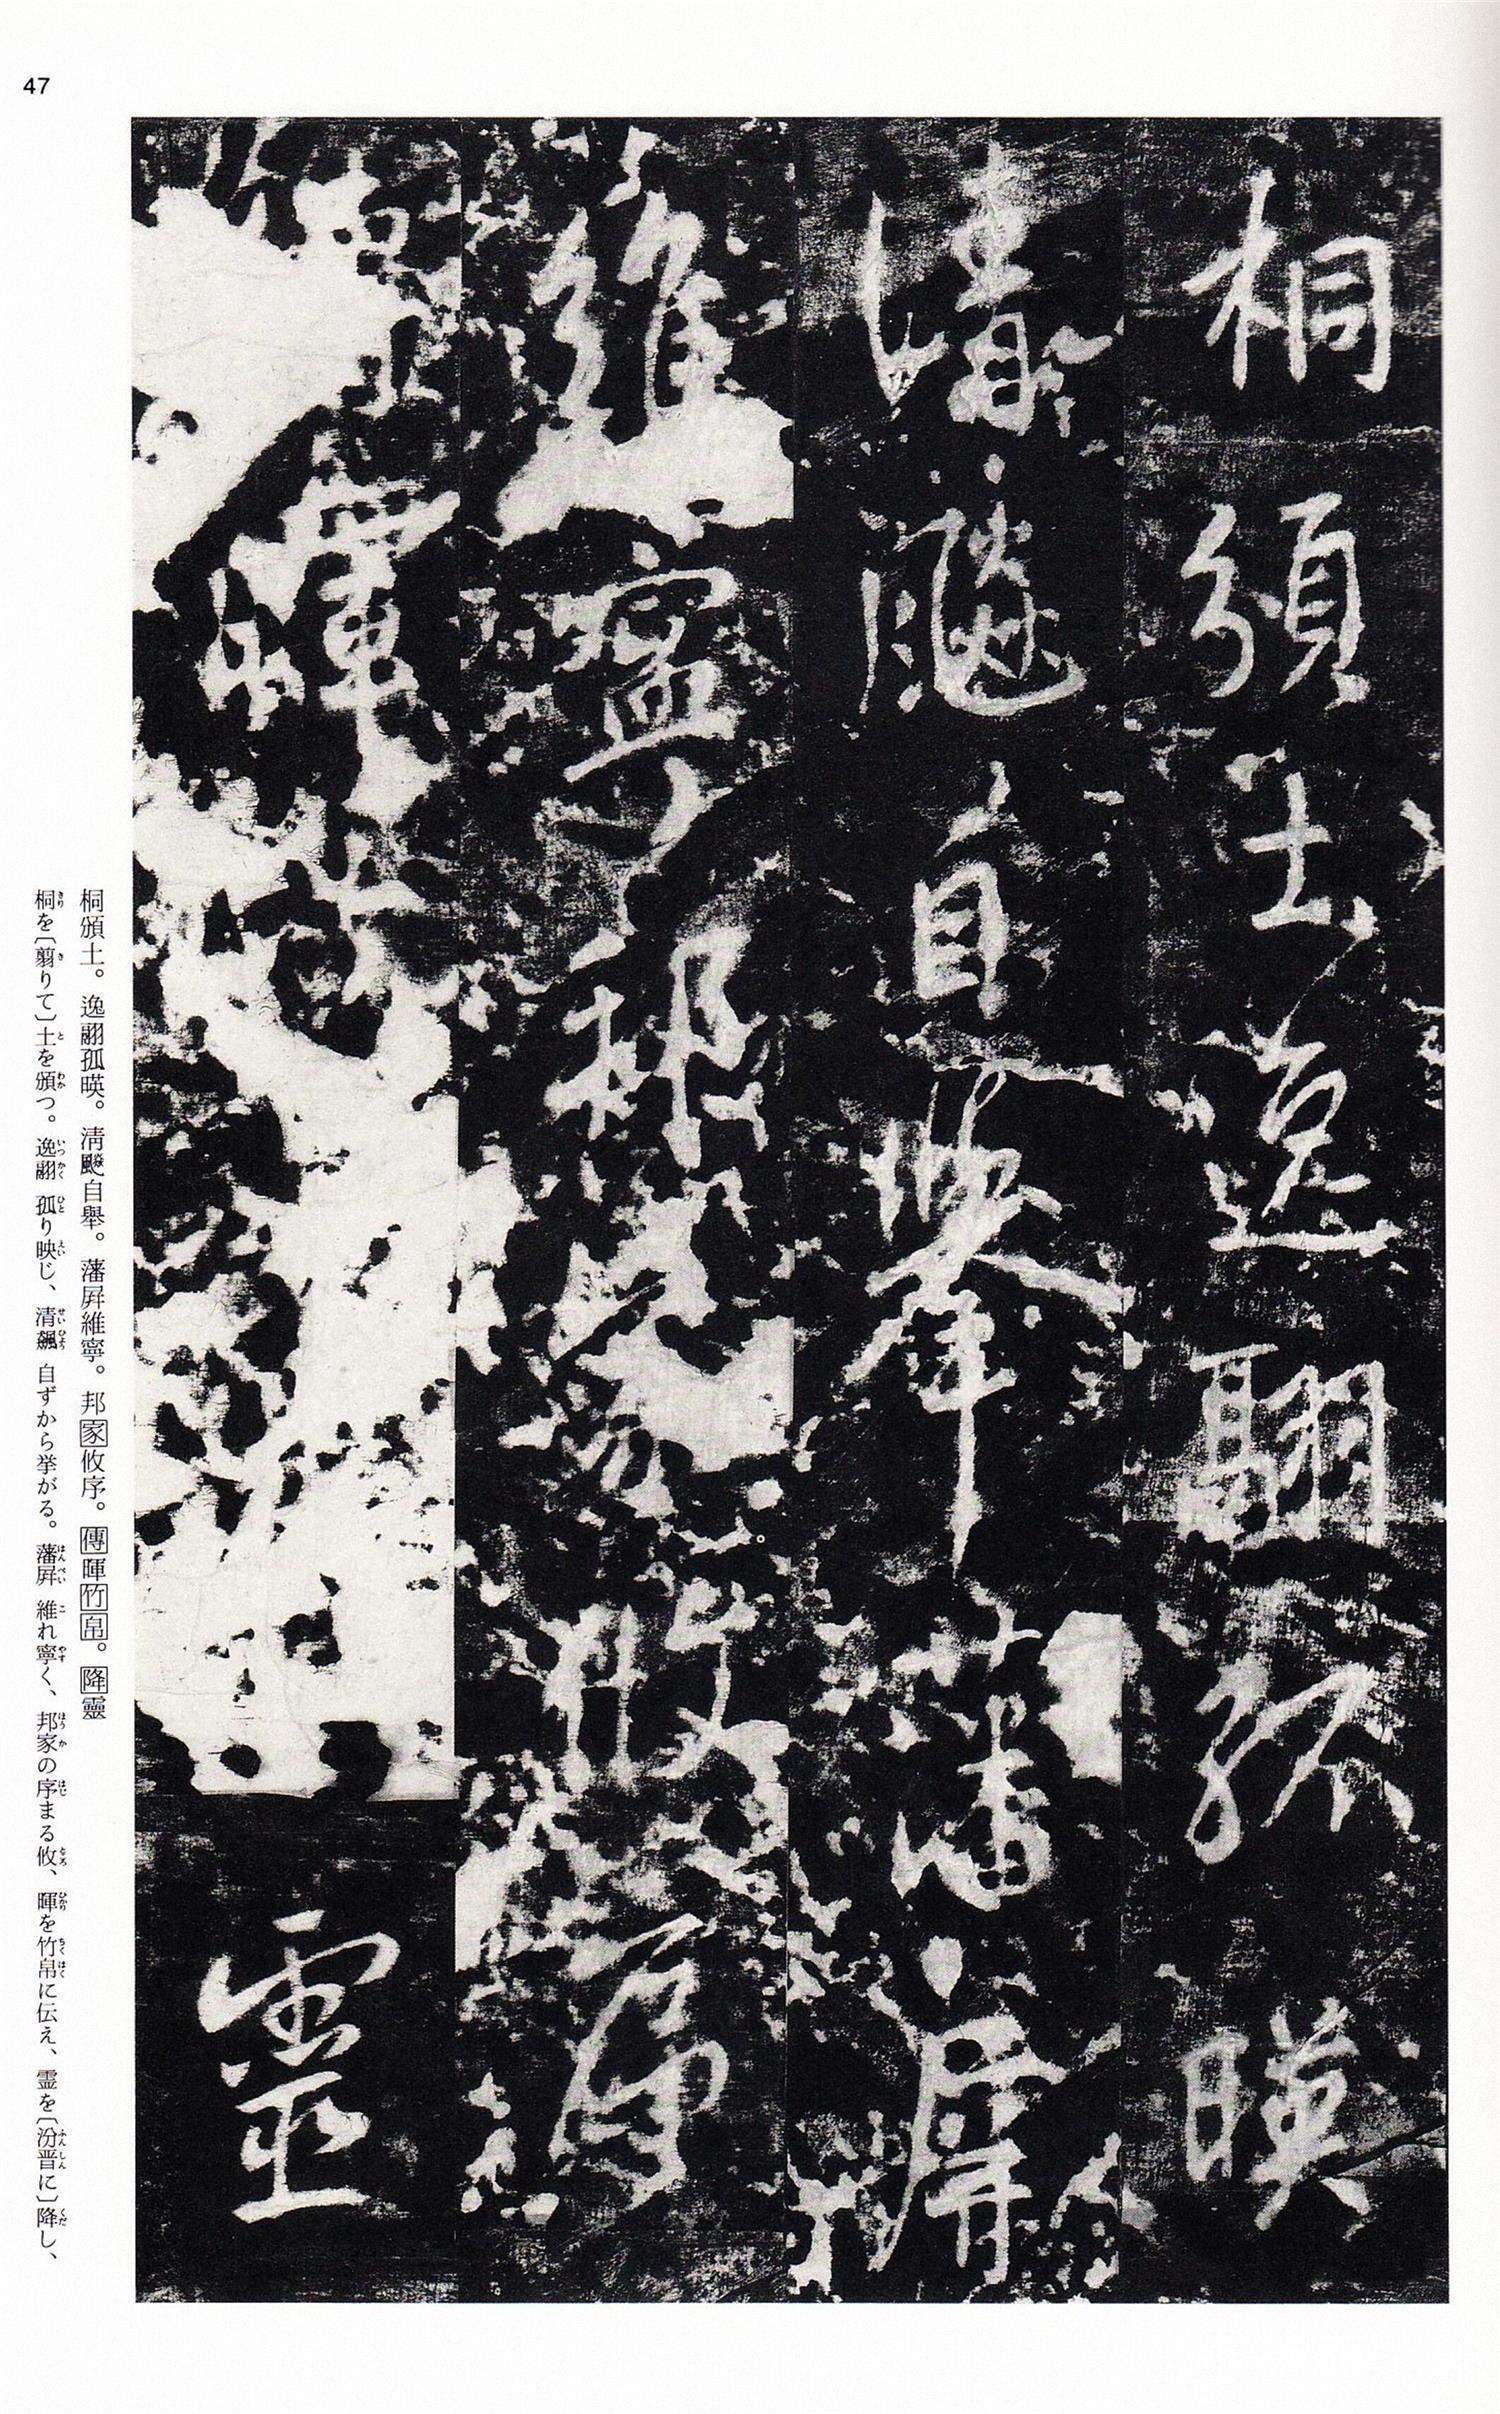 47
桐頒土逸翮孤暎
清飈自舉藩屏
維寧邦攸序
暉靈
桐頒土。逸翮孤暎。清飈自舉。藩屏維寧。邦家攸序。傳暉竹帛。降靈
桐を〔翦りて〕土を頒つ。逸翮 孤り映じ、清飆 自ずから挙がる。藩屏 維れ寧く、邦家の序まる攸、暉を竹帛に伝え、霊を〔汾晋に〕降し、